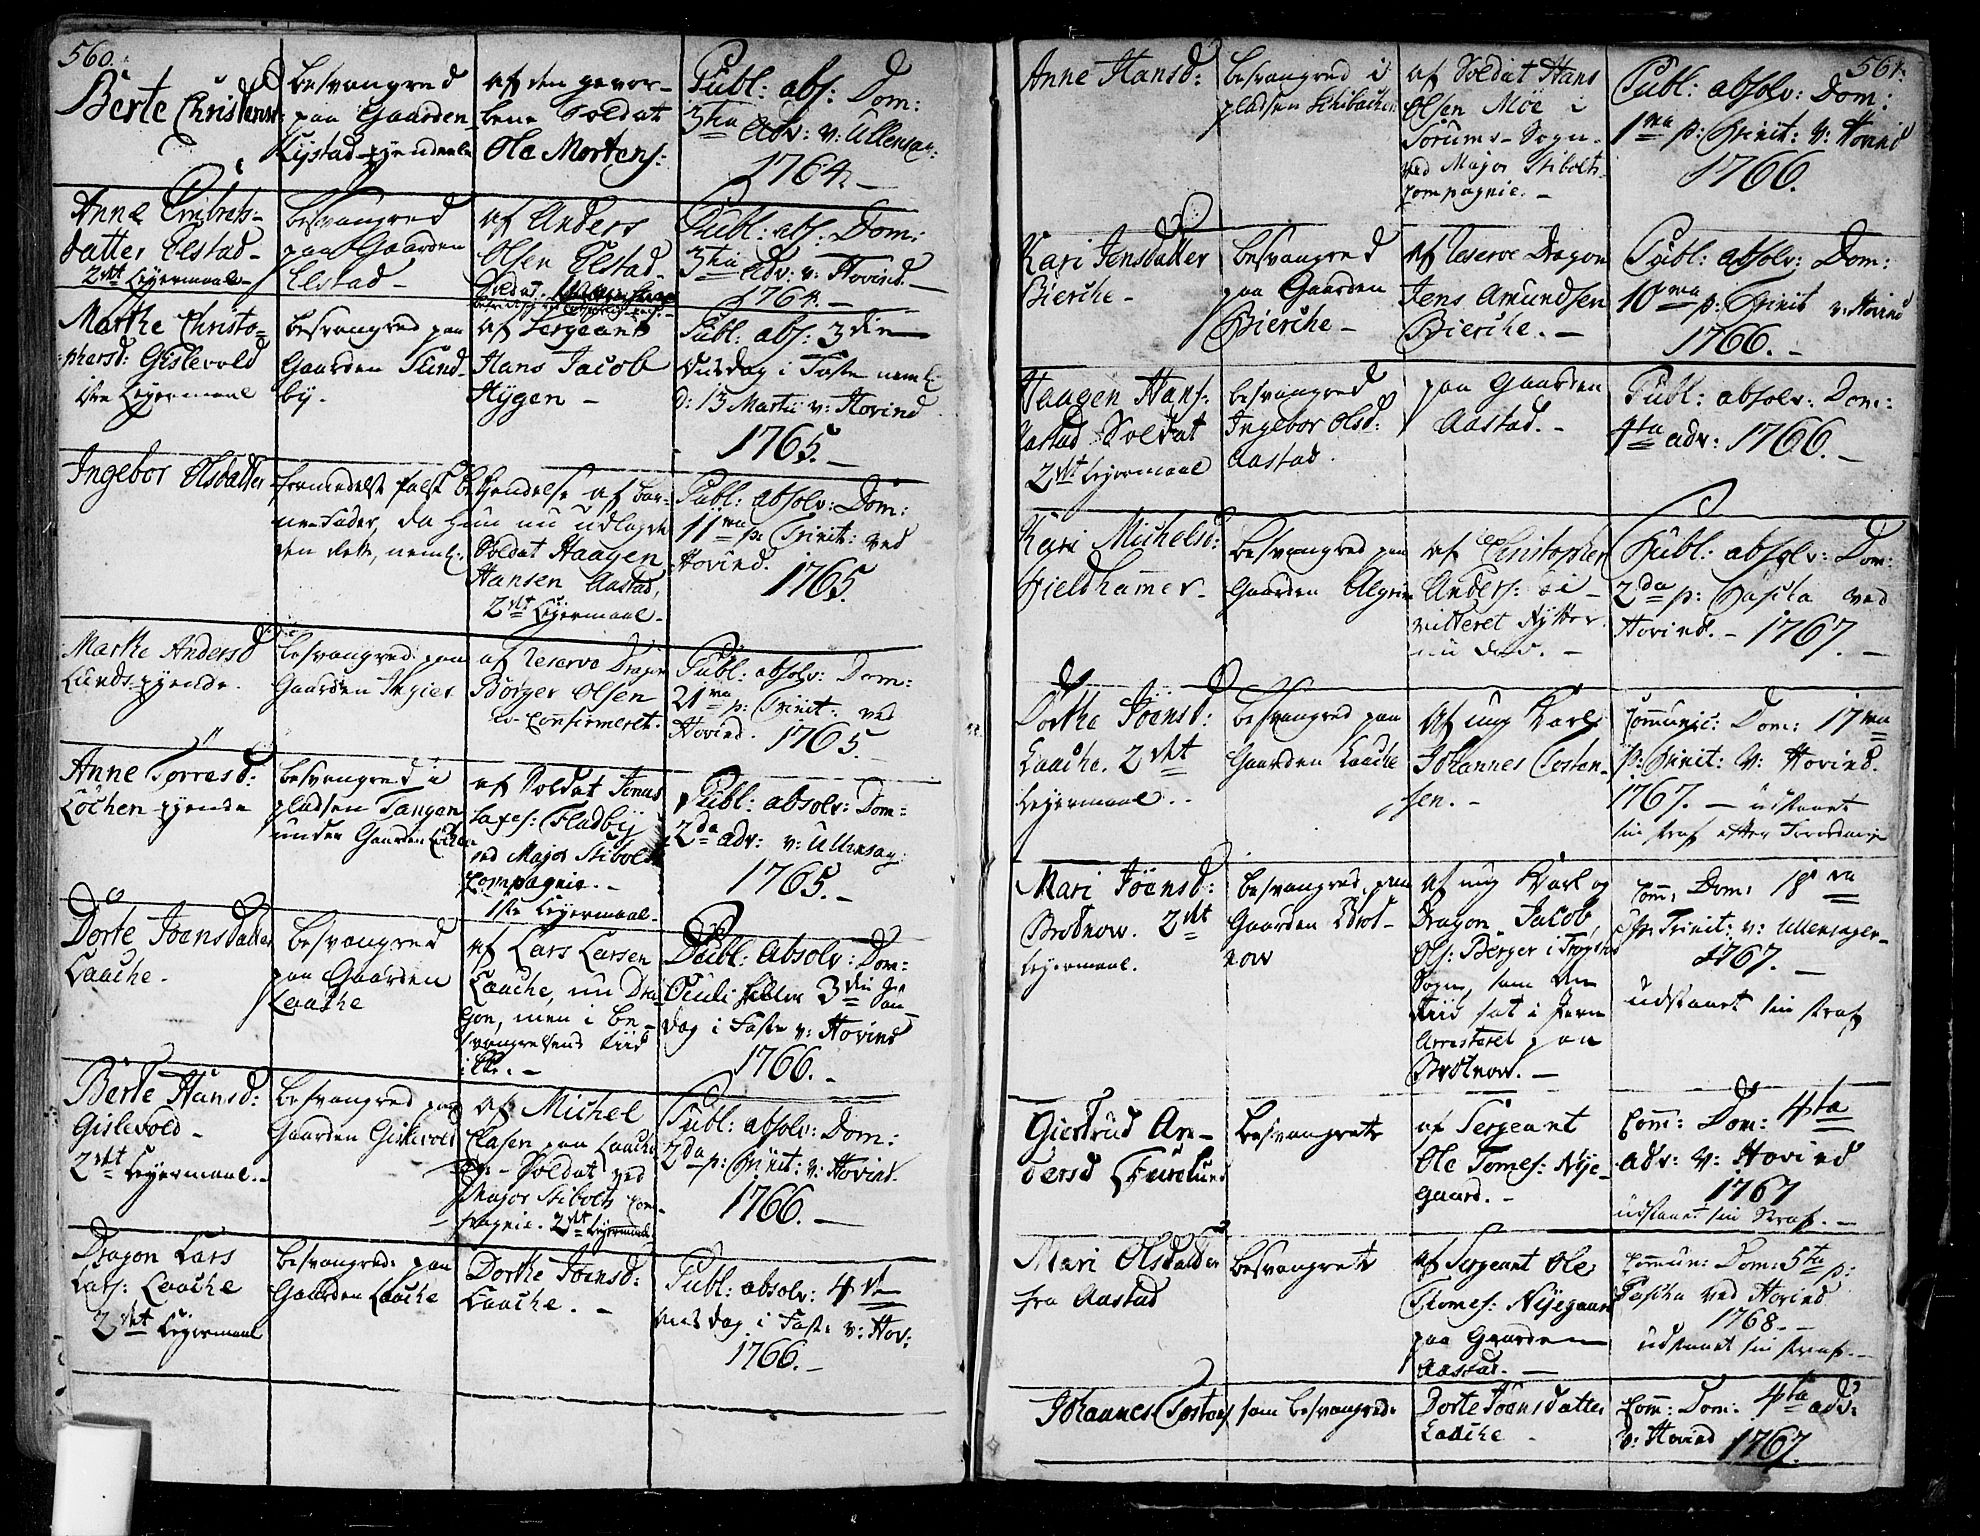 560.
Berte Christensd:
besvangred
paa Gaarden
Kystad tjenende
af den gevor-
bene Soldat
Ole Mortens:
Publ: abs: Dom:
3tia Adv: v: Ullensag:
1764. -
Anne Embrets-
datter Elstad -
2det Leyermaal -
besvangred
paa Gaarden
Elstad -
af Anders
Olsen Elstad -
Soldat.
Publ: abs: Dom:
3tia Adv: v: Hovind. -
1764. -
Marthe Christo-
phersd: Gislevold
1ste Leyermaal
besvangred paa
Gaarden Sund-
by.
af Sergeant
Hans Jacob
Hygen -
Publ: abs: 3die
Onsdag i Faste neml:
d: 13 Martii v: Hovind
1765. -
Ingebor Olsdatter
formedelst falsk bekjendelse af bar-
ne Fader, da hun nu udlagde
den rette, neml:
Soldat Haagen
Hansen Aastad,
2det Leyermaal -
Publ: absolv: Dom:
11ma p: Trinit: ved
Hovind.
1765.
Marthe Andersd
Lunds tjende.
besvangred paa
Gaarden
af Reserve Dragon
Børger Olsen
Confirmeret.
Publ: absolv: Dom:
21ma p: Trinit: ved
Hovind. 1765
Anne Torresd:
Løchen tjende
besvangred i
pladsen Tangen
under Gaarden Løchen
af Soldat Jonas
Fladbÿ
ved Major Stibolts
Compagnie. -
1ste Leyermaal -
Publ: absolv: Dom:
2da adv: v: Ullensag:
1765. -
Dorte Joensdatter
Laache.
besvangred
paa Gaarden
Laache
af Lars Larsen
Laache, nu Dra-
gon, men i be-
svangrelsens tiid
ikke. -
Publ: Absolv: Dom:
Oculi eller 3die Søn-
dag i Faste v: Hovind
1766. -
Berte Hansd:
Gislevold -
2det Leyermaal. -
besvangred paa
Gaarden Gislevold
af Michel
Clasen paa Laache
- Soldat ved
Major Stibolts Com-
pagnie. 2det Leyermaal
Publ: absolv: Dom:
2da p: Trinit: v: Hovind.
1766. -
Dragon Lars
Lars: Laache
2det Leyermaal
besvangrede paa
Gaarden Laache
Dorthe Joensd:
Laache. -
Publ: absolv: 4de
onsdag i Faste v: Hov:
1766. -
561.
Anne Hansd:
besvangred i
pladsen Schibachen
af Soldat Hans
Olsen Moe i
Sørums - Sogn -
ved Major Stibolts
Compagnie. -
Publ: absolv: Dom:
1ma p: Trinit: v: Hovind
1766.
Kari Jensdatter
Bierche -
besvangred
paa Gaarden
Bierche -
af Reserve Dragon
Jens Amundsen
Bierche. -
Publ: absolv: Dom:
10ma p: Trinit v: Hovind
1766. -
Haagen Hans:
Aastad Soldat
2det Leyermaal
besvangred
Ingebor Olsd:
Aastad.
paa Gaarden
Aastad. -
Publ: absolv: Dom:
4ta adv: 1766. -
Kari Michelsd:
Fieldhammer -
besvangred paa
Gaarden Algrim
af Christopher
Anders:
mitteret Rytter
nu død. -
Publ: absolv: Dom:
2da p: Pascha ved
Hovind. - 1767. -
Dorthe Jöensd:
Laache. 2det
Leyermaal. .
besvangred paa
Gaarden Laache
af ung Karl
Johannes Tosten-
sen. -
Communic: Dom: 17ma
p: Trinit: v: Hovind.
1767. - udstaaet
sin straf efter Forordning
Mari Jöensd:
Brotnow. 2det
Leyermaal.
besvangred paa
Gaarden Brot-
now
af ung Karl og
Dragon Jacob
Ols: Berger i Trøgsta
Sogn, som den
tiid sat i Jern
Arresteret paa
Brotnow. -
Com: Dom: 18va
p: Trinit: v: Ullensager -
1767. -
udstaaet sin straf
Giertrud An-
dersd Furulund
besvangrede
af Sergeant
Ole Tomes: Nye-
gaard. -
Com: Dom: 4ta
adv: v: Hovind
1767
udstaaet sin Straf. -
Mari Olsdatter
fra Aastad
besvangrede
af Sergeant Ole
Thomes: Nyegaard
paa Gaarden
Aastad. -
Commun: Dom: 5ta p:
Pascha ved Hovind
1768. -
udstaaet sin straf. -
Johannes Tostens
som besvangrede
Dorte Jöensdatter
Laache -
Com: Dom: 4ta adv:
v: Hovind 1767.